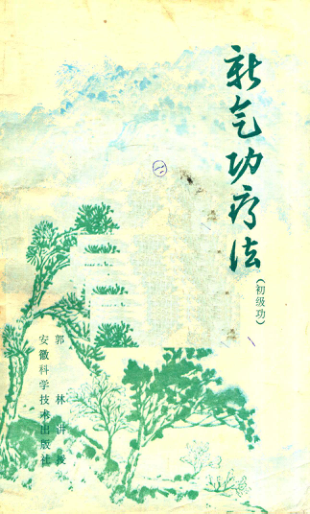 新气功疗法
(初级功)
郭林
安徽科学技术出版社